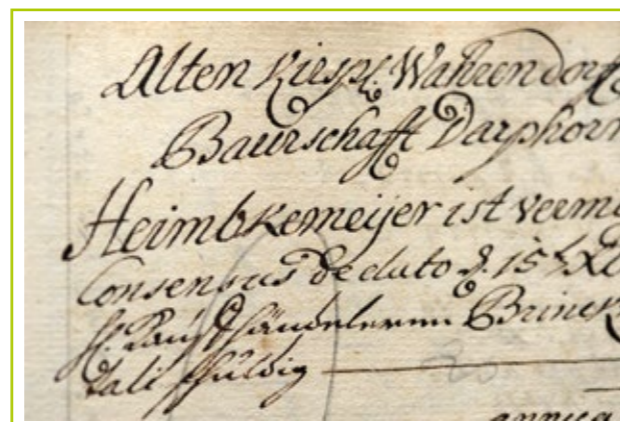 Alten Kirspl. Wahrendorff
Baurschafft Varphorn
Heimbkemeijer ist verm
Consensus de dato d. 15t
Brinck
tali schuldig
annua